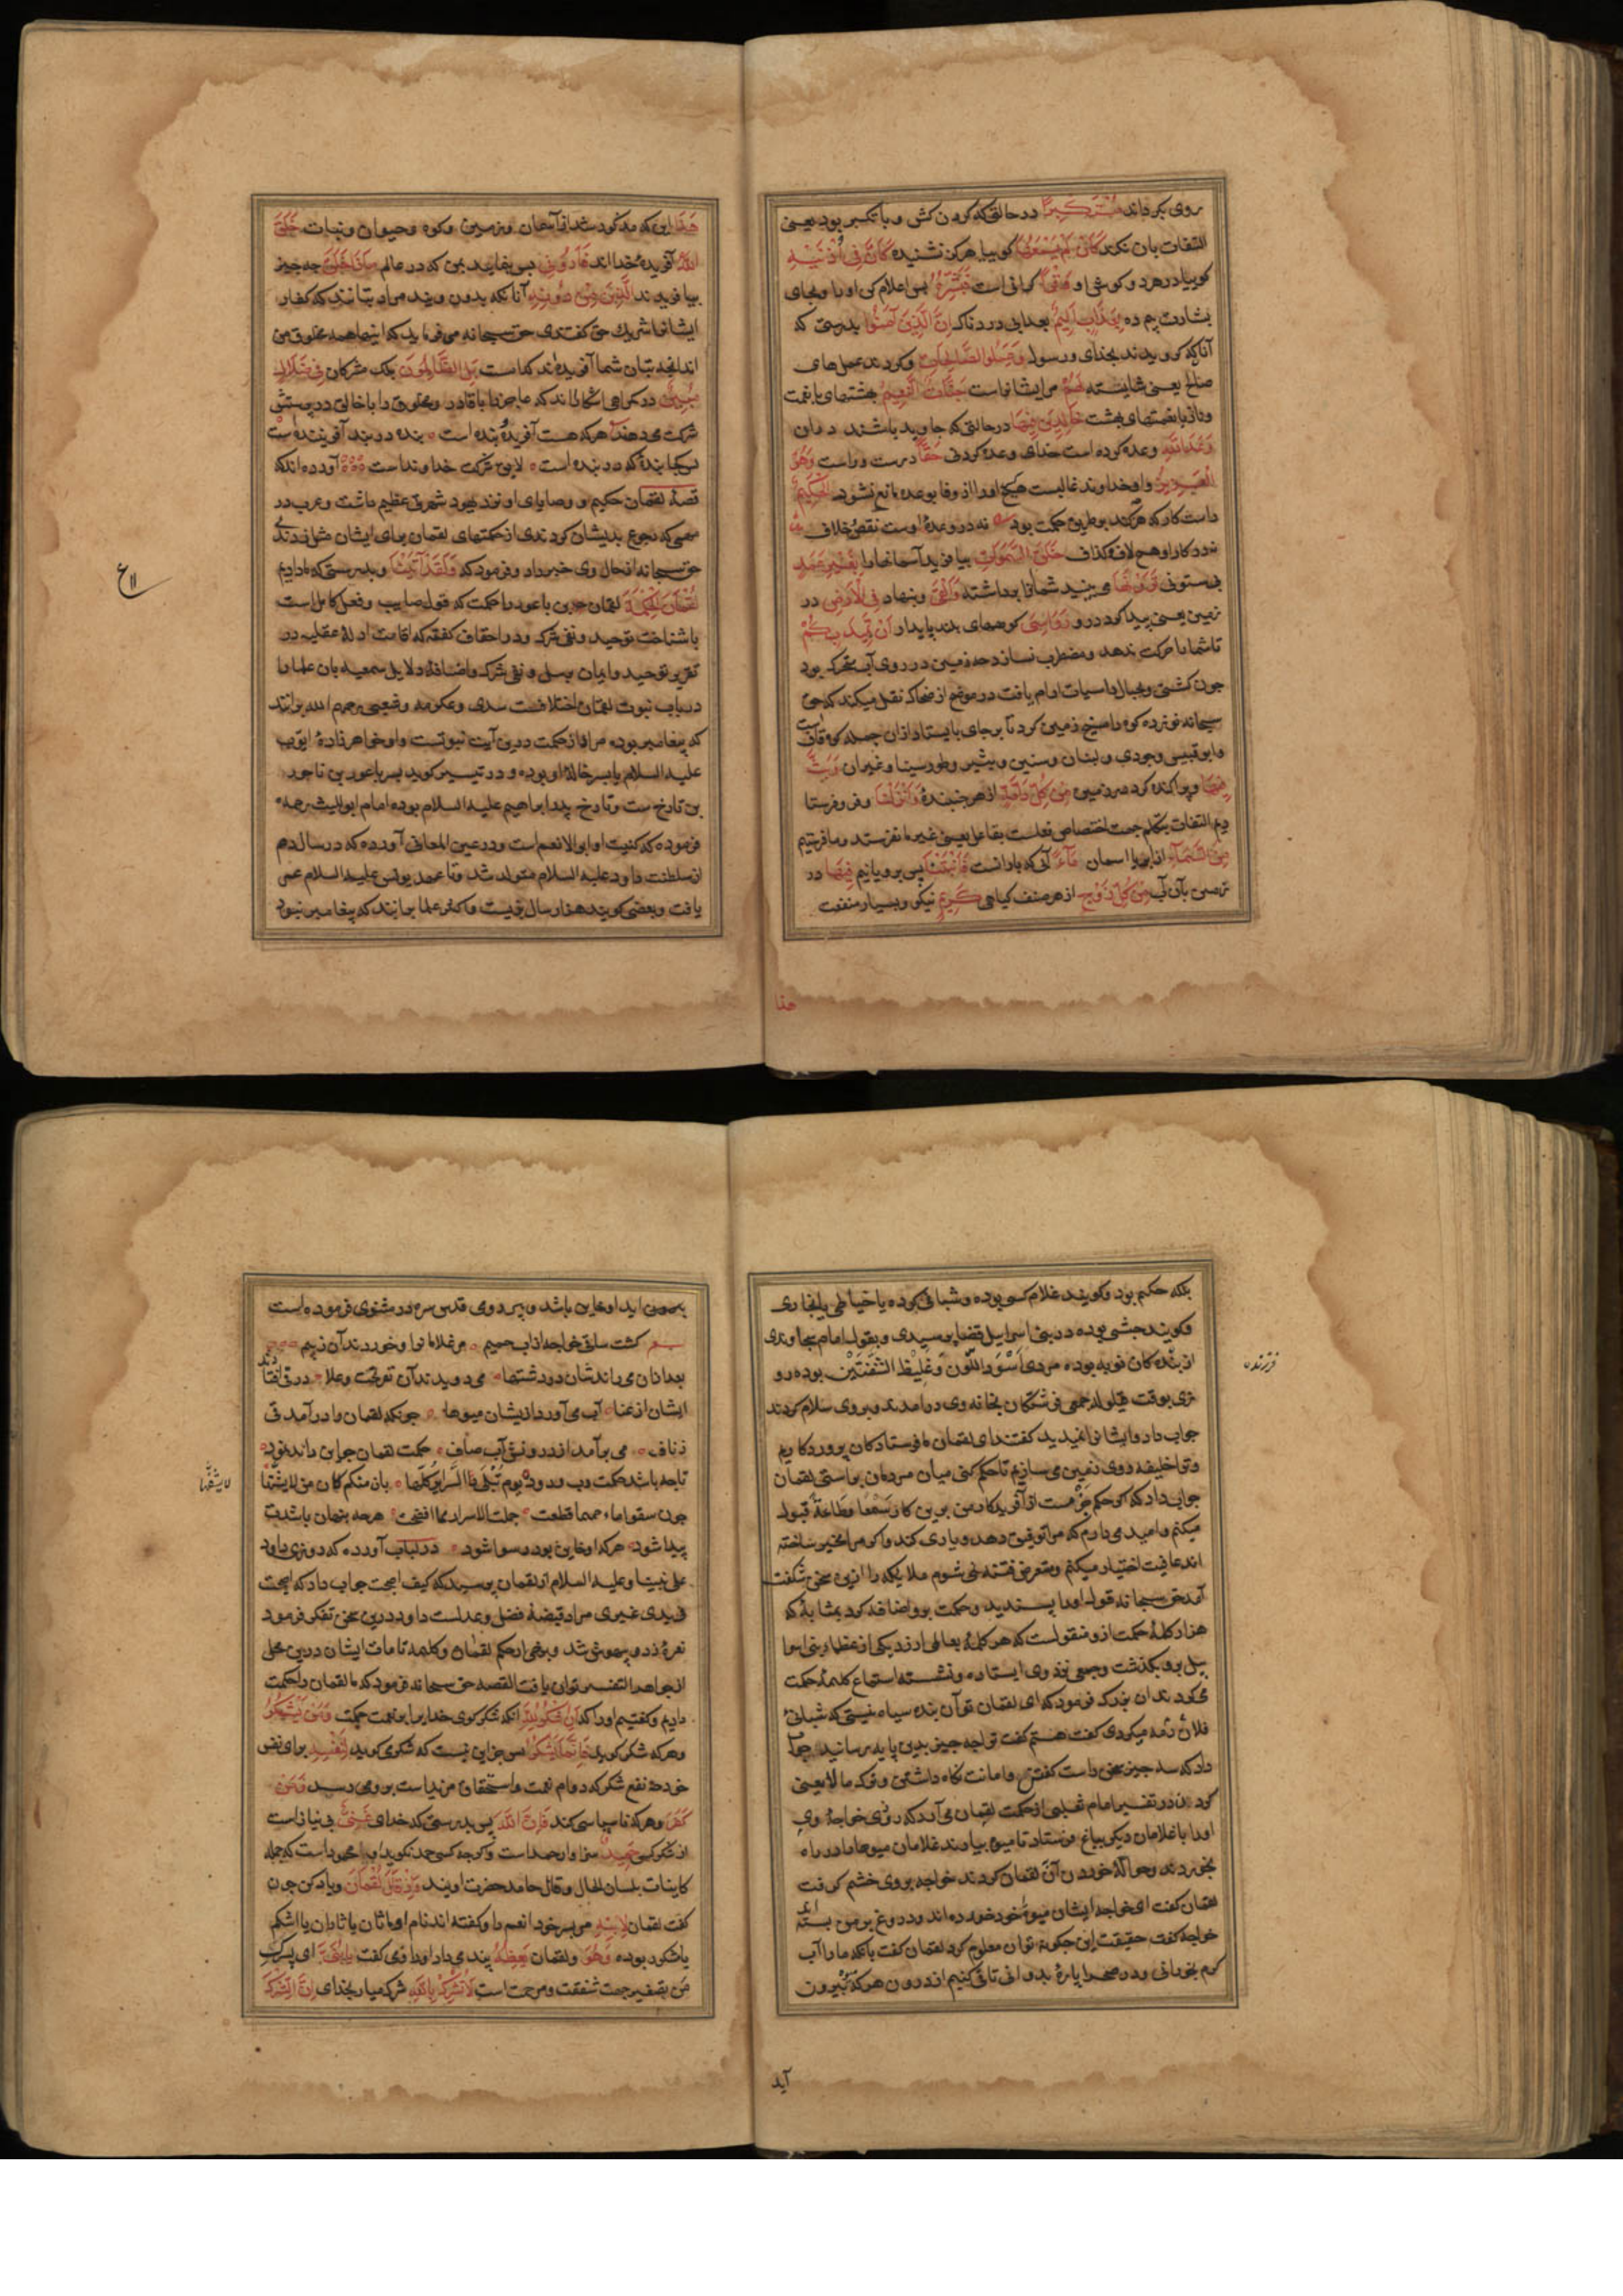 روی بکرداند مُسْتَکْبِراً در حالتی که کردن کش و با تکبر بود یعنی
التفات بان نکند کَاَنْ لَمْ یَسْمَعْهَا کوییا هرکز نشنیده کَاَنَّ فِی اُذُنَیْهِ
کوییا در هر دو کوش او وَقْراً کرانی است فَبَشِّرْهُ پس اعلام کن او را و بجای
بشارت بیم ده بِعَذَابٍ اَلِیمٍ بعذابی دردناک اِنَّ الَّذِینَ آمَنُوا بدرستی که
آنانکه کرویدند بخدای و رسول وَعَمِلُوا الصَّالِحَاتِ و کردند عملهای
صالح یعنی شایسته لَهُمْ مر ایشانراست جَنَّاتُ النَّعِیمِ بهشتهای با نعمت
و ناز یا نعمتهای بهشت خَالِدِینَ فِیهَا در حالتی که جاوید باشند در ان
وَعْدَ اللَّهِ وعده کرده است خدای وعده کردنی حَقّاً درست و راست وَهُوَ
الْعَزِیزُ و او خداوند غالبست هیچکس او را از وفا بوعده مانع نشود الْحَکِیمُ
داست کار که هرچه کند بر طریق حکمت بود نه در وعدهٔ اوست نقض و خلاف
نه در کار او هم لاف و کذاف خَلَقَ السَّمٰوَاتِ بیافرید آسمانها را بِغَیْرِ عَمَدٍ
بی ستونی تَرَوْنَهَا می بینید شما انرا برداشته وَاَلْقٰی و بنهاد فِی الْاَرْضِ در
زمین یعنی پیدا کرد در و رَوَاسِیَ کوههای بلند پایدار اَنْ تَمِیدَ بِکُمْ
تا شما را حرکت ندهد و مضطرب نسازد چه زمین در روی آب متحرک بود
چون کشتی و بجبال راسیات ارام یافت در موضح از ضحاک نقل میکند که حق
سبحانه نوزده کوه را میخ زمین کرد تا بر جای بایستاد از ان جمله کوه قافست
و ابو قبیس و جودی و لبنان و سنین و بثیر و طور سینا و غیر ان وَبَثَّ
فِیهَا و پراکنده کرد در زمین مِنْ کُلِّ دَابَّةٍ از هر جنبندهٔ وَاَنْزَلْنَا و فرو فرستا
دیم التفات بتکلم جهت اختصاص فعلست بفاعل یعنی غیر ما نفرستد و ما فرستیم
مِنَ السَّمَآءِ از ابر یا اسمان مَآءً آبی که بارانست فَاَنْبَتْنَا پس برویانیم فِیهَا در
زمین بان آب مِنْ کُلِّ زَوْجٍ از هر صنف کیاهی کَرِیمٍ نیکو و بسیار منفعت
هذا
هٰذَا این که مذکور شد از آسمان و زمین و کوه و حیوان و نبات خَلْقُ
اللَّهِ آفریدهٔ خدا اند فَاَرُونِی پس بنمایید بمن که در عالم مَاذَا خَلَقَ چه چیز
بیافریدند الَّذِینَ مِنْ دُونِهِ آنانکه بدون ویند مراد بتانند که کفار
ایشانرا شریک حق کفتندی حق سبحانه می فرماید که اینها همه مخلوق من
اند انچه بتان شما آفریده‌اند کداست بَلِ الظَّالِمُونَ بلکه مشرکان فِی ضَلَالٍ
مُبِینٍ در کمراهی اشکارااند که عاجز را با قادر و مخلوق را با خالق در پرستش
شرکت می دهند هر که هست آفریدهٔ بنده است بنده در بند آفریننده است
پس کجا بندهٔ که در بند است لایق شرکت خداوند است آورده اند که
قصهٔ لقمان حکیم و وصایای او نزد یهود شهرتی عظیم داشت و عرب در
مهمی که رجوع بدیشان کردندی از حکمتهای لقمان برای ایشان مثل زدندی
حق سبحانه از حال وی خبر داد و فرمود که وَلَقَدْ آتَیْنَا و بدرستی که ما دادیم
لُقْمَانَ الْحِکْمَةَ لقمان بن باعور را حکمت که قول صایب و فعل کامل است
یا شناخت توحید و نفی شرک و در احقاف کفته که اقامت ادلهٔ عقلیه در
تقریر توحید و ایمان برسل و نفی شرک و اضافهٔ دلایل سمعیه بان علما را
در باب نبوت لقمان اختلافست سدی و عکرمه و شعبی رحمهم الله برانند
که پیغامبر بوده مراد از حکمت درین آیت نبوتست و او خواهرزادهٔ ایوب
علیه السلام یا پسر خالهٔ او بوده و در تیسیر کوید پسر باعور بن ناحور
بن تارخ ست و تارخ پدر ابراهیم علیه السلام بوده امام ابو اللیث رحمه
فرموده که کنیت او ابو الانعم است و در عین المعانی آورده که در سال دهم
از سلطنت داود علیه السلام متولد شد و تا عهد یونس علیه السلام عمر
یافت و بعضی کویند هزار سال زیست و اکثر علما برانند که پیغامبر نبود
بلکه حکیم بود و کویند غلام کسی بوده و شبانی کرده یا خیاطی یا نجاری
و کویند حبشی بوده در بنی اسراییل قضا پرسیدی و بقول امام سجاوندی
از بنده کان نوبه بوده مردی اَسْوَدَ اللَّوْن وَغَلِیظَ الشَّفَتَیْن بوده رو
زی بوقت قیلوله جمعی فرشتکان بخانه وی درامدند و بر وی سلام کردند
جواب داد و ایشانرا نمیدید کفتند ای لقمان ما فرستادکان پروردکاریم
و ترا خلیفه روی زمین می سازیم تا حکم کنی میان مردمان براستی لقمان
جواب داد که کر حکم جزم است از آفریدکار من برین کار سَمْعاً وَطَاعَةً قبول
میکنم و امید میدارم که مرا توفیق دهد و یاری کند و اکر مرا مخیر ساخته
اند عافیت اختیار میکنم و متعرض فتنه نمی شوم ملایکه را ازین سخن شکفت
آمد حق سبحانه قول او را پسندید و حکمت برو اضافه کرد بمثابهٔ که
هزار کلمهٔ حکمت ازو منقولست که هر کلمهٔ بعالمی ارزد یکی از عظماء بنی اسرا
ییل برو بکذشت و جمعی نزد وی ایستاده و نشسته استماع کلمهٔ حکمت
می کردند ان بزرک فرمود که ای لقمان تو آن بنده سیاه نیستی که شبانی
فلان رمه میکردی کفت هستم کفت ترا چه چیز بدین پایه رسانید جواب
داد که سه چیز سخن راست کفتن و امانت نکاه داشتن و ترک ما لا یعنی
کردن در تفسیر امام ثعلبی از حکمت لقمان می آرد که روزی خواجهٔ وی
او را با غلامان دیکر بباغ فرستاد تا میوه بیارند غلامان میوها را در راه
بخوردند و حوالهٔ خوردن آن لقمان کردند خواجه بر وی خشم کرفت
لقمان کفت ای خواجه ایشان میوهٔ خود خورده اند و دروغ بر من بسته اند
خواجه کفت حقیقت این چکونه توان معلوم کرد لقمان کفت بانکه ما را آب
کرم بخورانی و در صحرا پارهٔ بدوانی تا قی کنیم از درون هر که بیرون
فرزند
آید
کشت ساقی خواجه از آب حمیم مر غلامانرا و خوردند آن ز بیم
بعد از ان می راندشان در دشتها می دویدند آن نفر تحت و علا در قی افتا دند
ایشان از عنا آب می آورد زیشان میوها چونکه لقمان را در آمد قی
ز ناف می برآمد از درونش آب صاف حکمت لقمان چو این داند نمود
تا چه باشد حکمت رب ودود یوم تُبْلَی السرائر کلها بان منکم کامن لا یشتها
چون سقوا ماء حمیما قطعت جملت الاسرار مما افضحت هرچه پنهان باشدت
پیدا شود هر که او خاین بود رسوا شود در لباب آورده که روزی داود
علی نبینا و علیه السلام از لقمان پرسید که کیف اصبحت جواب داد که اصبحت
فی یدی غیری مراد قبضهٔ فضل و عدلست داود درین سخن تفکر فرمود
نعره زد و بیهوش شد و برخی از حکم لقمان و کلمه تامات ایشان درین محل
از جواهر التفسیر توان یافت القصه حق سبحانه فرمود که ما لقمان را حکمت
دادیم و کفتیم او را که اَنِ اشْکُرْ لِلّٰهِ انکه شکر کوی خدایرا بر نعمت حکمت وَمَنْ یَشْکُرْ
و هر که شکر کوید فَاِنَّمَا یَشْکُرُ پس جز این نیست که شکر می کوید لِنَفْسِهِ برای نفس
خود چه نفع شکر که دوام نعمت و استحقاق مزید است برو می رسد وَمَنْ
کَفَرَ و هر که ناسپاسی کند فَاِنَّ اللّٰهَ پس بدرستی که خدای غَنِیٌّ بی نیاز است
از شکر کسی حَمِیدٌ سزاوار حمد است و کرچه کسی حمد نکوید او را محمود است که جمله
کاینات بلسان الحال و قال حامد حضرت اویند وَاِذْ قَالَ لُقْمَانُ و یاد کن چون
کفت لقمان لِابْنِهِ مر پسر خود انعم را و کفته اند نام او ماثان یا ثاران یا اشکم
یا شکور بوده وَهُوَ و لقمان یَعِظُهُ پند می داد او را و می کفت یَا بُنَیَّ ای پسرک
من تصغیر جهت شفقت و مرحمت است لَا تُشْرِکْ بِاللّٰهِ شرک میار بخدای اِنَّ الشِّرْکَ